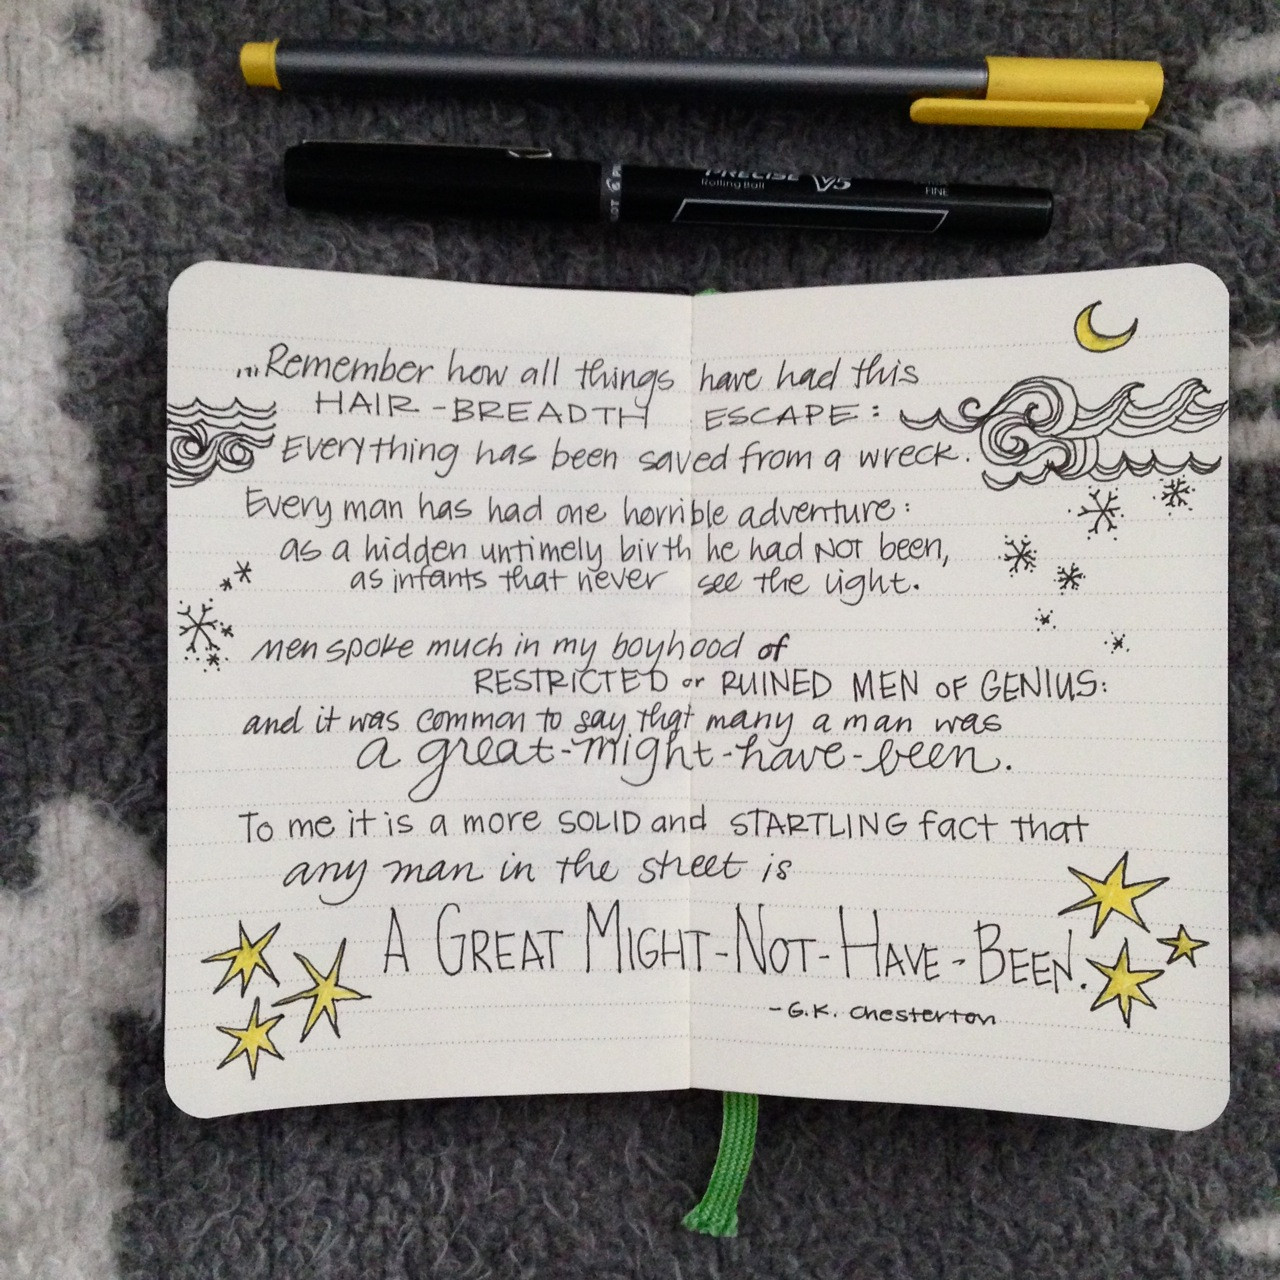 PRECISE V5
Rolling Ball
FINE
...Remember how all things have had this
HAIR-BREADTH ESCAPE:
Everything has been saved from a wreck.
Every man has had one horrible adventure:
as a hidden untimely birth he had NOT been,
as infants that never see the light.
Men spoke much in my boyhood of
RESTRICTED or RUINED MEN OF GENIUS:
and it was common to say that many a man was
a great-might-have-been.
To me it is a more SOLID and STARTLING fact that
any man in the street is
A GREAT MIGHT-NOT-HAVE-BEEN.
-G.K. Chesterton